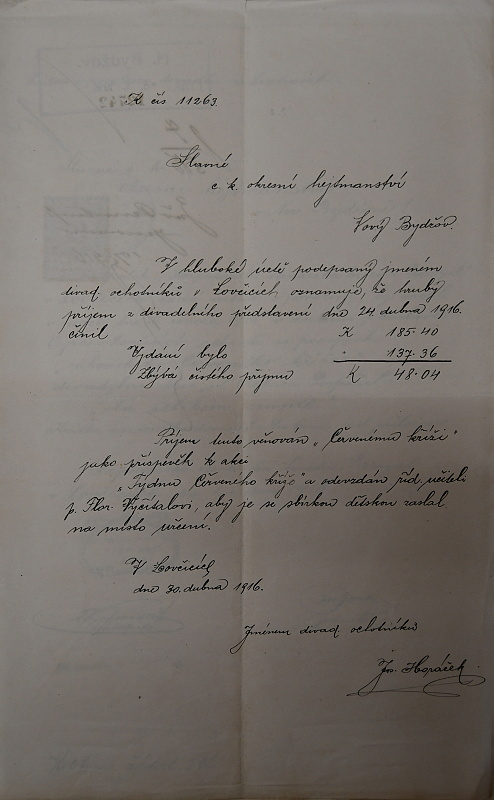 K čís 11263.
Slavné
c. k. okresní hejtmanství
Nový Bydžov.
V hluboké úctě podepsaný jménem
divad. ochotníků v Lovčicích oznamuje, že hrubý
příjem z divadelního představení dne 24. dubna 1916.
činil K 185.40
Vydání bylo " 137.36
Zbývá čistého příjmu K 48.04
Příjem tento věnován "Červenému kříži"
jako příspěvek k akci
"Týdnu Červeného kříže" a odevzdán říd. učiteli
p. Flor. Vyčítalovi, aby je se sbírkou dětskou zaslal
na místo určení.
V Lovčicích
dne 30. dubna 1916.
Jménem divad. ochotníků
Jos. Horáček